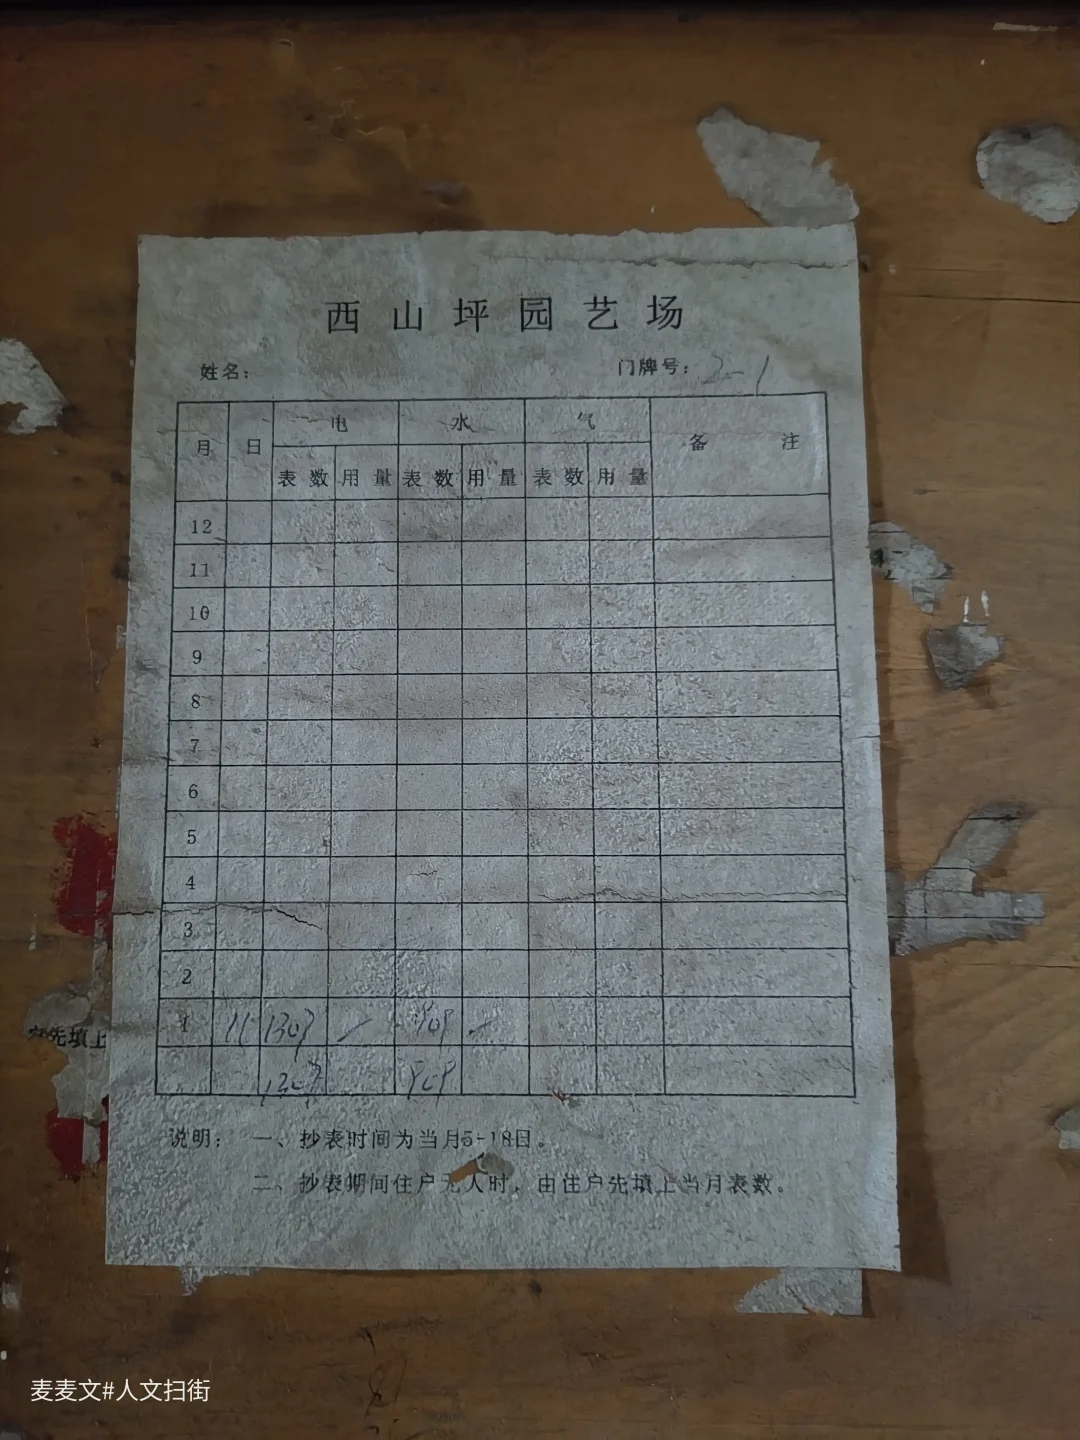 西山坪园艺场
姓名： 门牌号：2-1
月 日 电 水 气 备注
表数 用量 表数 用量 表数 用量
12
11
10
9
8
7
6
5
4
3
2
1
说明：一、抄表时间为当月5-18日。
二、抄表期间住户无人时，由住户先填上当月表数。
先填上
麦麦文#人文扫街